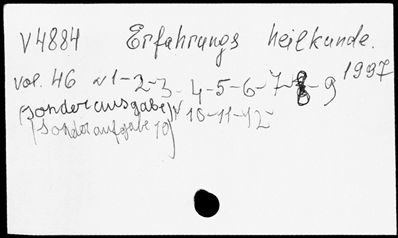 V4884 Erfahrungs heilkunde.
vol. 46 N 1-2-3-4-5-6-7-8-9 1997
(Sonderausgabe) N 10-11-12
(Sonderaufgabe 10)